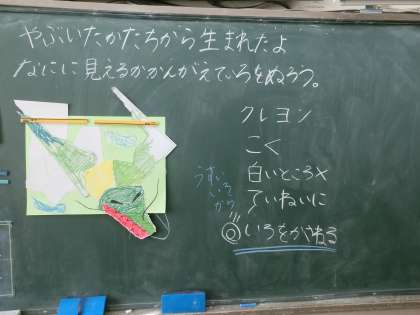 やぶいたかたちから生まれたよ
なにに見えるかかんがえていろをぬろう。
クレヨン
こく
白いところ×
ていねいに
うすい
いろ
から
◎いろをかさねる